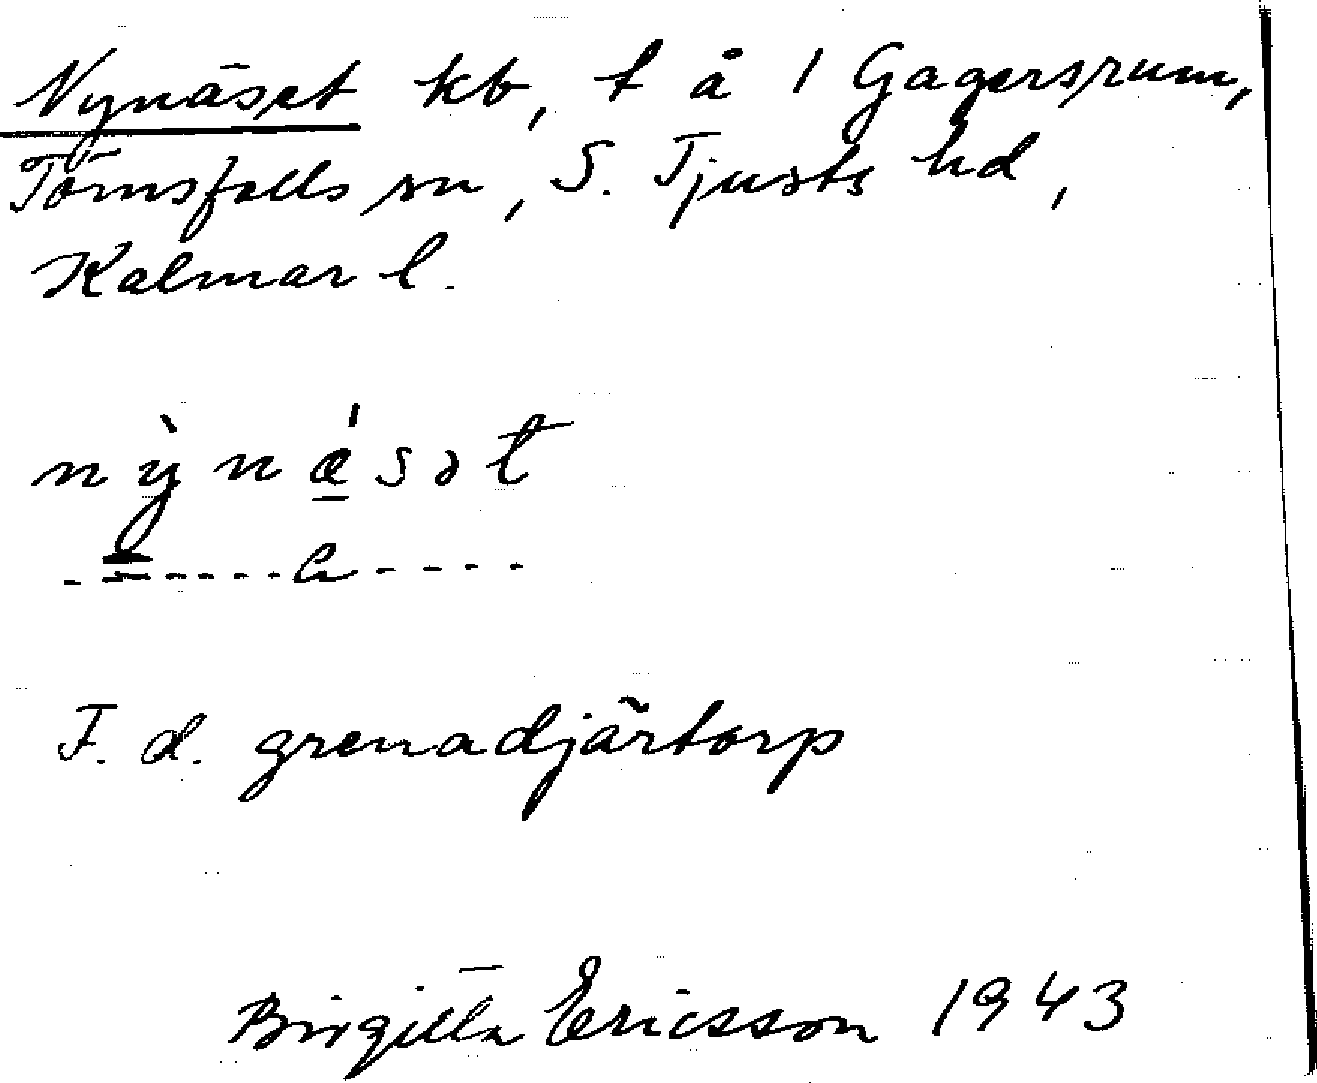 Nynäset kb, t å 1 Gagersrum,
Törnsfalls sn, S. Tjusts hd,
Kalmar l.
nỳnǽsət
F. d. grenadjärtorp
Birgitta Ericsson 1943